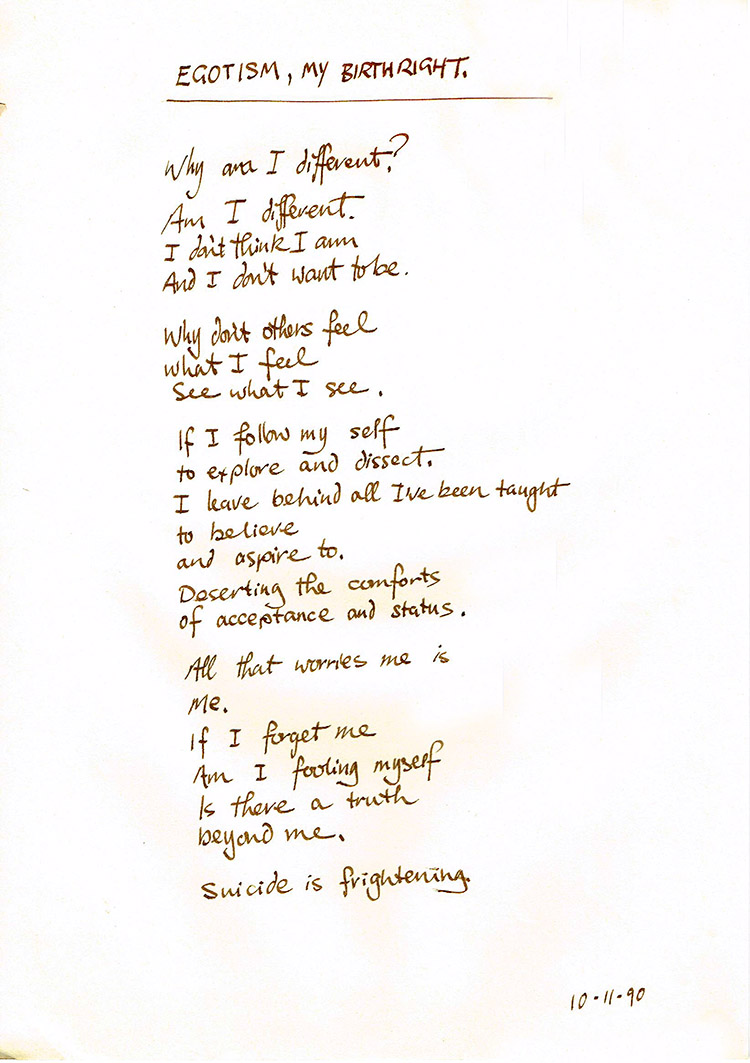 EGOTISM, MY BIRTHRIGHT.
Why am I different?
Am I different.
I don't think I am
And I don't want to be.
Why don't others feel
what I feel
See what I see.
If I follow my self
to explore and dissect.
I leave behind all I've been taught
to believe
and aspire to.
Deserting the comforts
of acceptance and status.
All that worries me is
me.
If I forget me
Am I fooling myself
Is there a truth
beyond me.
Suicide is frightening.
10-11-90